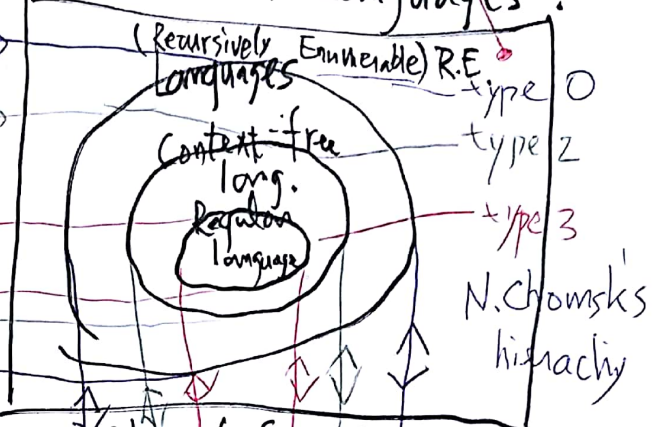 (Recursively Enumerable) R.E
Languages
type 0
Context-free
lang.
type 2
Regular
language
type 3
N.Chomsk's
hierachy